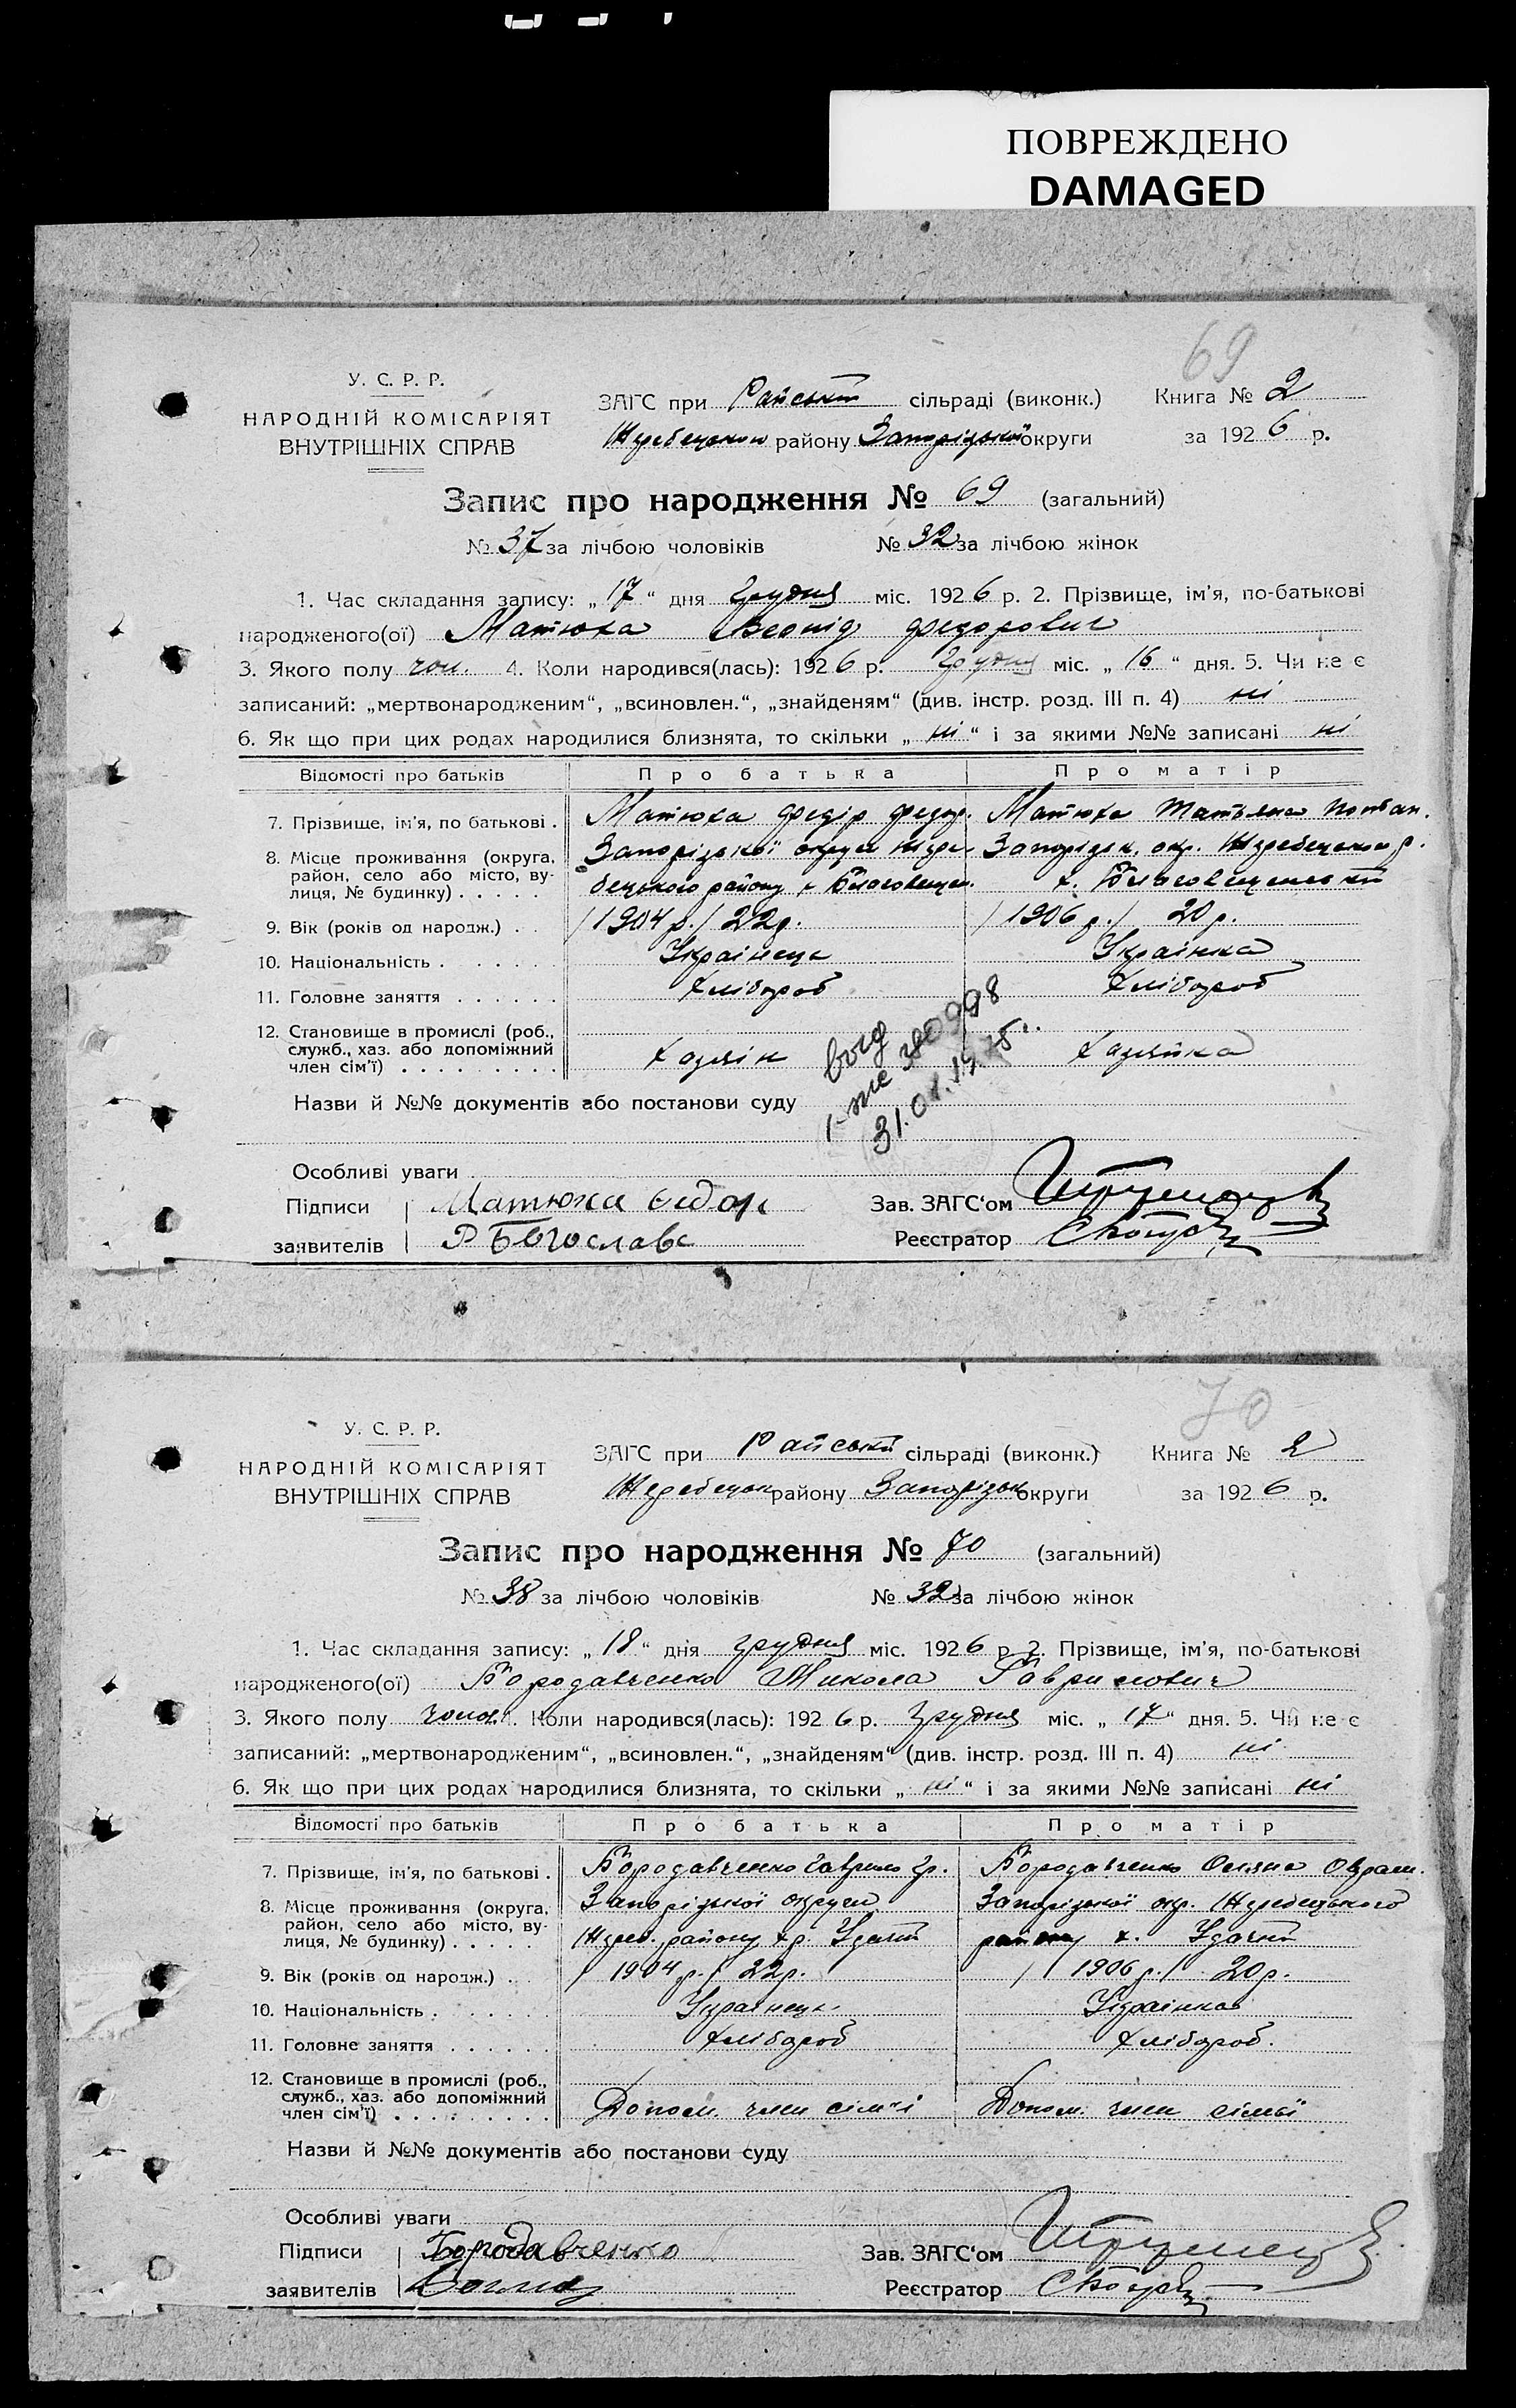 ПОВРЕЖДЕНО
DAMAGED
69
У. С. Р. Р.
НАРОДНІЙ КОМІСАРІЯТ
ВНУТРІШНІХ СПРАВ
ЗАГС при Райській сільраді (виконк.) Книга № 2
району Запорізької округи за 1926 р.
Запис про народження № 69 (загальний)
№ 37 за лічбою чоловіків № 32 за лічбою жінок
1. Час складання запису: „17“ дня грудня міс. 1926 р. 2. Прізвище, ім'я, по-батькові
народженого(ої) Матюха Леонід Федорович
3. Якого полу чол. 4. Коли народився(лась): 1926 р. грудня міс. „16“ дня. 5. Чи не є
записаний: „мертвонародженим“, „всиновлен.“, „знайденям“ (див. інстр. розд. III п. 4) ні
6. Як що при цих родах народилися близнята, то скільки „ні“ і за якими №№ записані ні
Відомості про батьків Про батька Про матір
7. Прізвище, ім'я, по батькові . Матюха Федір Федор. Матюха Татьяна
8. Місце проживання (округа, Запорізької округи Жере- Запорізьк. окр. Жеребецького р.
район, село або місто, ву- бецького району х. Благовещен. х. Благовещенський
лиця, № будинку) . . . . .
9. Вік (років од народж.) . . /1904 р./ 22р. /1906 р./ 20 р.
10. Національність . . . . . . Українець Українка
11. Головне заняття . . . . . . Хлібороб Хлібороб
12. Становище в промислі (роб.,
служб., хаз. або допоміжний Хазяїн Хазяйка
член сім'ї) . . . . . . . . .
выд
I-ЖС 380998
31.01.1975г.
Назви й №№ документів або постанови суду
Особливі уваги
Підписи Матюха Зав. ЗАГС'ом
заявителів Р Богослав Реєстратор
70
У. С. Р. Р.
НАРОДНІЙ КОМІСАРІЯТ
ВНУТРІШНІХ СПРАВ
ЗАГС при Райській сільраді (виконк.) Книга № 2
Жеребецьк району Запорізьк округи за 1926 р.
Запис про народження № 70 (загальний)
№ 38 за лічбою чоловіків № 32 за лічбою жінок
1. Час складання запису: „18“ дня грудня міс. 1926 р. 2. Прізвище, ім'я, по-батькові
народженого(ої) Бородавченко Микола Гаврилович
3. Якого полу чолов. Коли народився(лась): 1926 р. грудня міс. „17“ дня. 5. Чи не є
записаний: „мертвонародженим“, „всиновлен.“, „знайденям“ (див. інстр. розд. III п. 4) ні
6. Як що при цих родах народилися близнята, то скільки „ні“ і за якими №№ записані ні
Відомості про батьків Про батька Про матір
7. Прізвище, ім'я, по батькові . Бородавченко Гаврило Гр. Бородавченко Оврам.
8. Місце проживання (округа, Запорізької округи Запорізької окр. Жеребецького
район, село або місто, ву- Жереб. району хр. Удачний району х. Удачний
лиця, № будинку) . . . . .
9. Вік (років од народж.) . . /1904 р./ 22р. /1906 р./ 20 р.
10. Національність . . . . . . Українець Українка
11. Головне заняття . . . . . . Хлібороб Хлібороб.
12. Становище в промислі (роб.,
служб., хаз. або допоміжний Допом. член сім'ї Допом. член сімьї
член сім'ї) . . . . . . . . .
Назви й №№ документів або постанови суду
Особливі уваги
Підписи Бородавченко Зав. ЗАГС'ом
заявителів Реєстратор